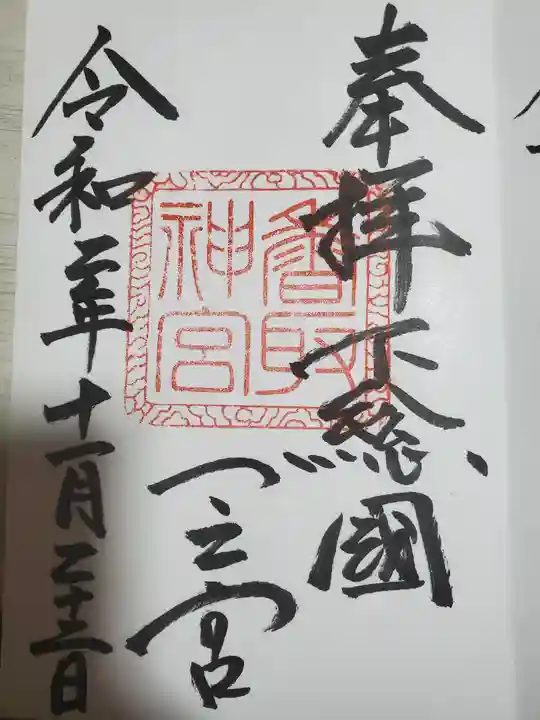 奉拝 下総國
一之宮
香取
神宮
令和二年十一月二十三日